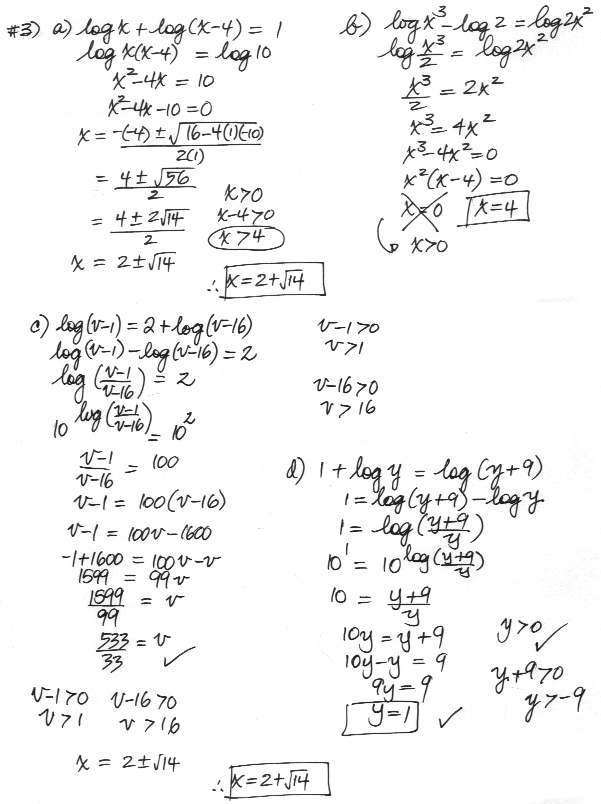 #3) a) log x + log(x-4) = 1
log x(x-4) = log 10
x²-4x = 10
x²-4x-10=0
x = -(-4) ± √16-4(1)(-10) / 2(1)
= 4 ± √56 / 2
x>0
= 4 ± 2√14 / 2
x-4>0
x>4
x = 2±√14
∴ x=2+√14
b) log x³ - log 2 = log 2x²
log x³/2 = log 2x²
x³/2 = 2x²
x³ = 4x²
x³-4x²=0
x²(x-4)=0
x=0 x=4
x>0
c) log(v-1) = 2+log(v-16)
log(v-1) - log(v-16) = 2
log (v-1/v-16) = 2
10^log(v-1/v-16) = 10²
v-1/v-16 = 100
v-1 = 100(v-16)
v-1 = 100v-1600
-1+1600 = 100v-v
1599 = 99v
1599/99 = v
533/33 = v ✓
v-1>0
v>1
v-16>0
v>16
v-1>0 v-16>0
v>1 v>16
x = 2±√14
∴ x=2+√14
d) 1 + log y = log (y+9)
1 = log(y+9) - log y
1 = log (y+9/y)
10¹ = 10^log(y+9/y)
10 = y+9/y
10y = y+9
10y-y = 9
9y=9
y=1 ✓
y>0 ✓
y+9>0
y>-9